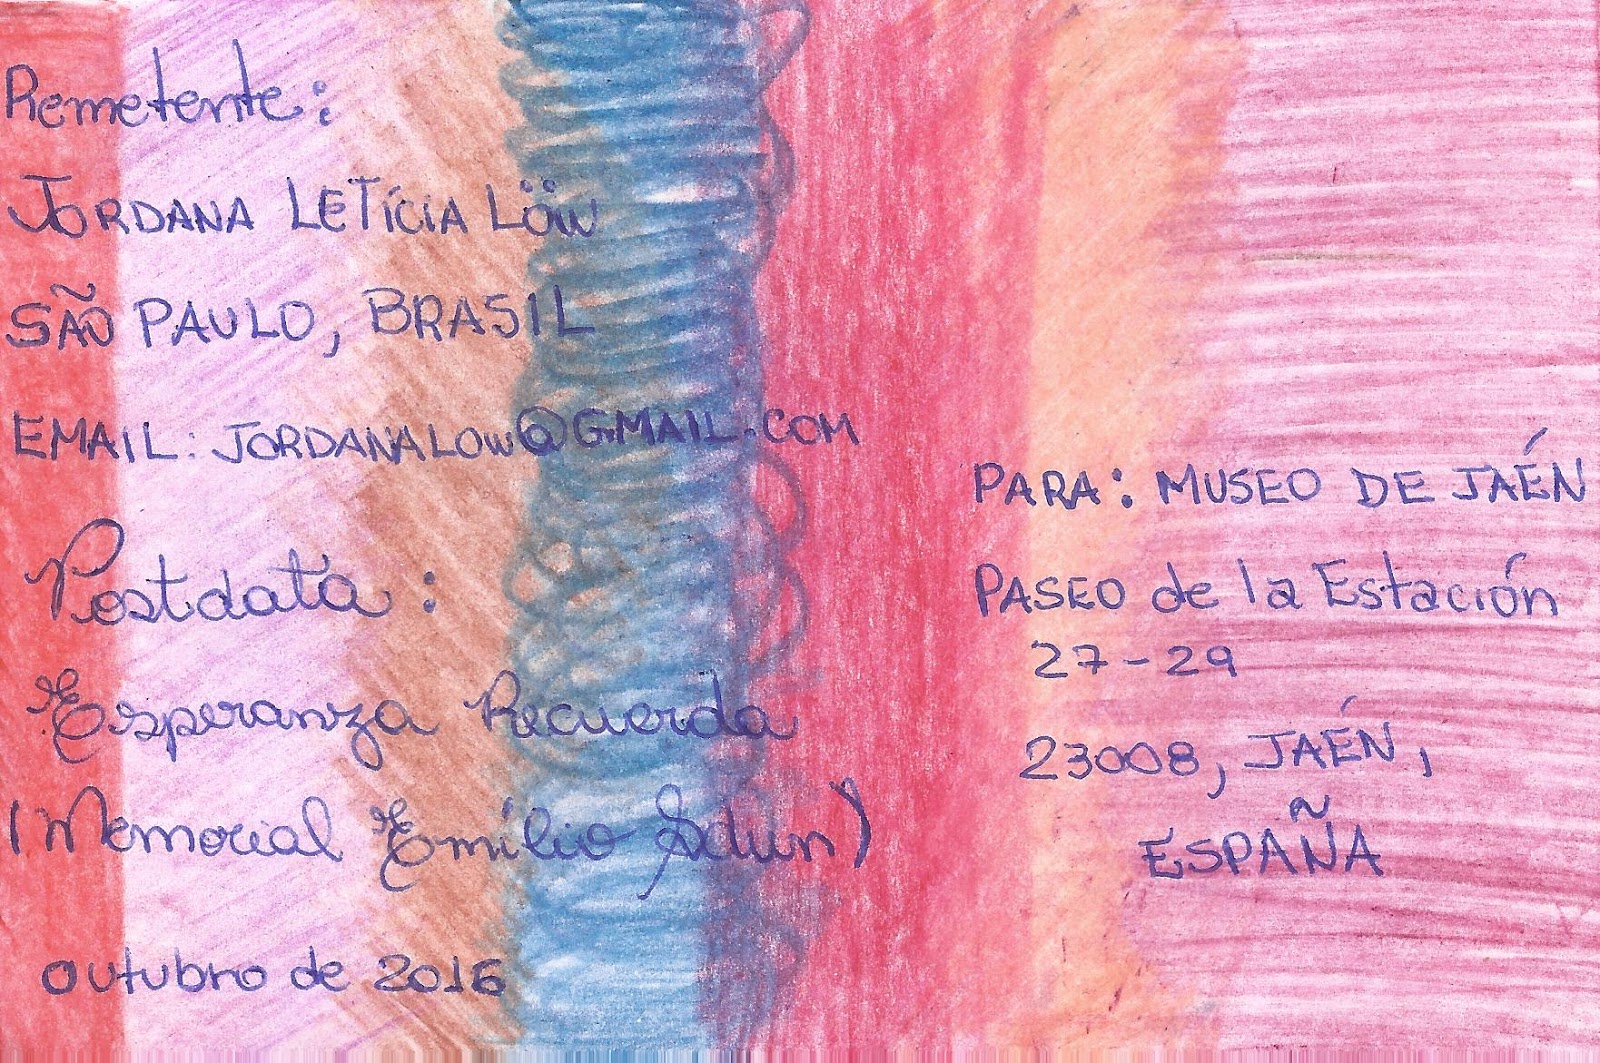 Remetente:
JORDANA LETÍCIA LÖW
SÃO PAULO, BRASIL
EMAIL: JORDANALOW@GMAIL.COM
Postdata:
Esperanza Recuerda
(Memorial Emílio Sdun)
outubro de 2016
PARA: MUSEO DE JAÉN
PASEO de la Estación
27-29
23008, JAÉN,
ESPAÑA